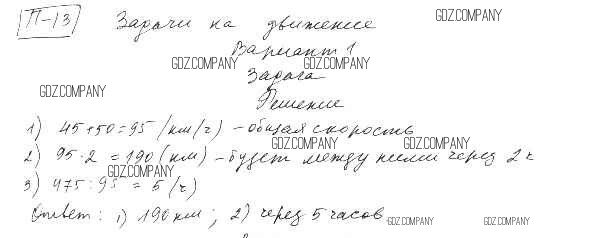 П-13 Задачи на движение GDZ.COMPANY
Вариант 1
GDZ.COMPANY GDZ.COMPANY
Задача
GDZ.COMPANY
Решение
1) 45+50=95 (км/ч) – общая скорость
GDZ.COMPANY GDZ.COMPANY
2) 95·2 = 190 (км) – будет между ними через 2 ч
GDZ.COMPANY
3) 475:95 = 5 (ч)
Ответ: 1) 190 км; 2) через 5 часов GDZ.COMPANY GDZ.COMPANY